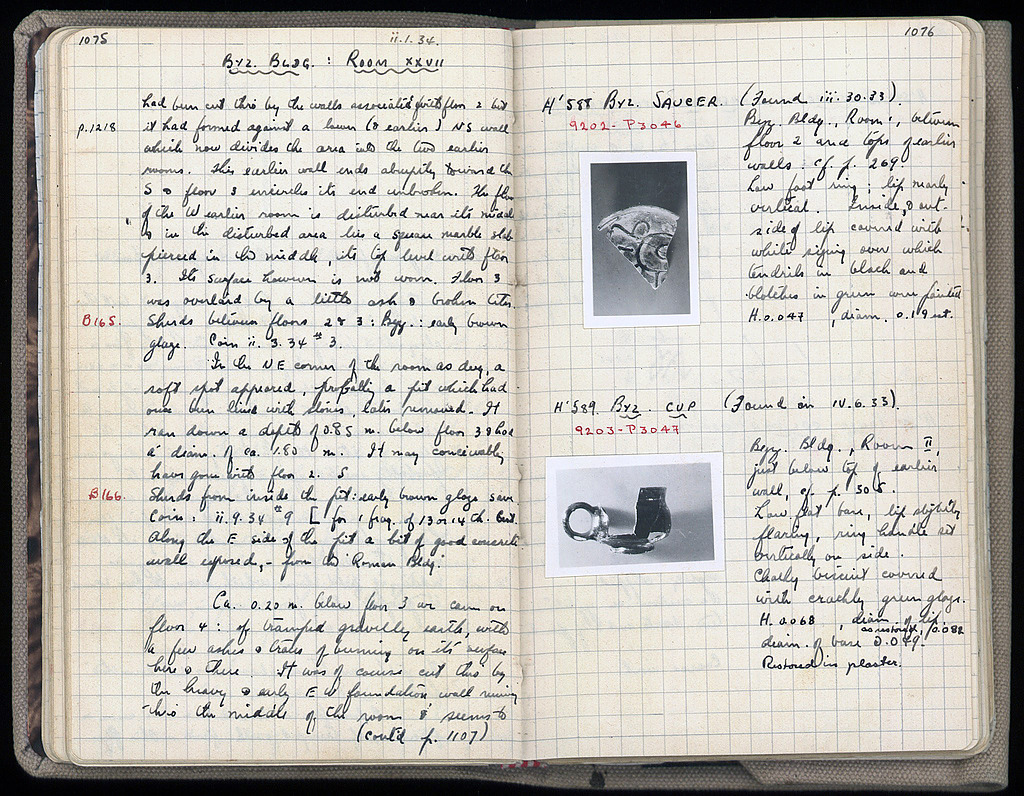 1075
ii.1.34.
Byz. Bldg. : Room XXVII
had been cut thro by the walls associated with floor 2 but
p.1218
it had formed against a lower (& earlier) NS wall
which now divides the area into the two earlier
rooms. This earlier wall ends abruptly toward the
S & floor 3 encircles its end unbroken. The floor
of the W earlier room is disturbed near its middle
& in the disturbed area lies a square marble slab
pierced in the middle, its top level with floor
3. Its surface however is not worn. Floor 3
was overlaid by a little ash & broken tiles.
B165.
Sherds between floors 2 & 3 : Byz. : early brown
glaze. Coin ii. 3. 34 # 3.
In the NE corner of the room as dug, a
soft spot appeared, probably a pit which had
once been lined with stones, later removed. It
ran down a depth of 0.85 m. below floor 3 & had
a diam. of ca. 1.80 m. It may conceivably
have gone with floor 2. S
B166.
Sherds from inside the pit: early brown glaze save
Coins : ii.9.34 # 9 [ for 1 frag. of 13 or 14 th. Cent.
Along the E side of the pit a bit of good concrete
wall exposed, - from the Roman Bldg.
Ca. 0.20 m. below floor 3 we came on
floor 4 : of tramped gravelly earth, with
a few ashes & traces of burning on its surface
here & there. It was of course cut thro by
the heavy & early E W foundation wall running
thro the middle of the room & seems to
(cont'd p. 1107)
1076
H'588 Byz. Saucer. (Found iii.30.33).
9202 - P3046
Byz. Bldg., Room, between
floor 2 and tops of earlier
walls. cf. p. 269.
Low foot ring; lip nearly
vertical. Inside, & out
side of lip covered with
white sizing over which
tendrils in black and
blotches in green were painted
H. 0.047 , diam. 0.19 est.
H'589. Byz. Cup (Found on IV.6.33).
9203 - P3047
Byz. Bldg., Room II,
just below top of earlier
wall, cf. p. 305.
Low flat base, lip slightly
flaring, ring handle set
vertically on side.
Chalky biscuit covered
with crackly green glaze.
H. 0.068 , diam. of lip,
as restored, 0.082
diam. of base 0.049.
Restored in plaster.